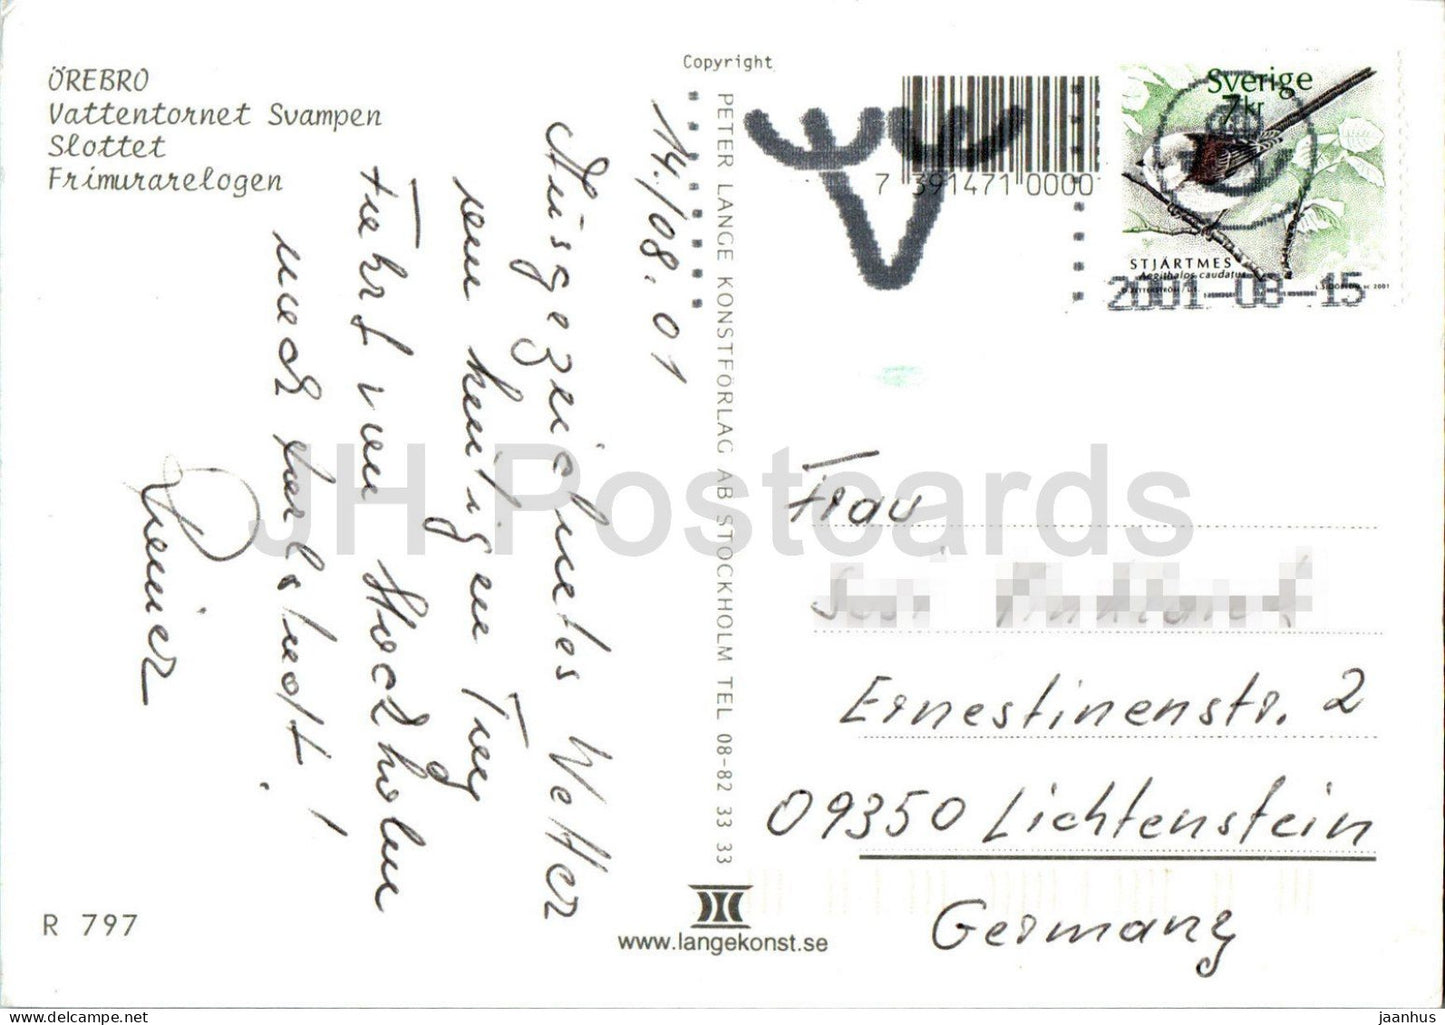 ÖREBRO
Vattentornet Svampen
Slottet
Frimurarelogen
14./08.01
Ausgezeichnetes Wetter
am heutigen Tag
Fahrt von Stockholm
nach Karlstadt!
Rainer
R 797
Copyright
PETER LANGE KONSTFÖRLAG AB STOCKHOLM TEL 08-82 33 33
www.langekonst.se
7 391471 0000
Sverige
7 kr
STJÄRTMES
Aegithalos caudatus
2001-08-15
Frau
Ernestinenstr. 2
09350 Lichtenstein
Germany
JH Postcards
jaanhus | www.delcampe.net